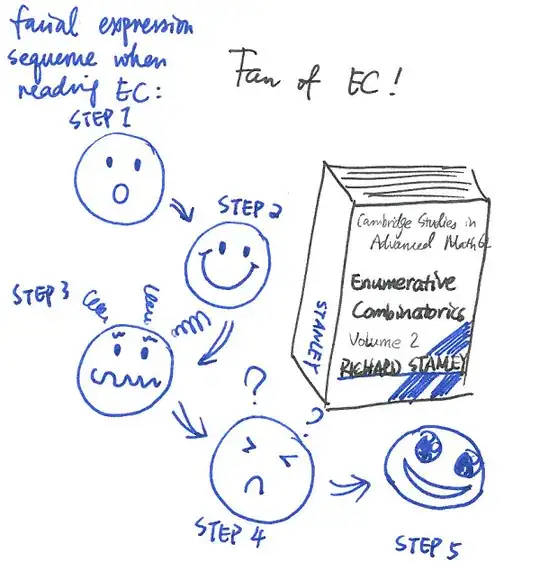 facial expression
sequence when
reading EC:
Fan of EC!
STEP 1
STEP 2
STEP 3
? ?
STEP 4
STEP 5
STANLEY
Cambridge Studies in
Advanced Math 62
Enumerative
Combinatorics
Volume 2
RICHARD STANLEY